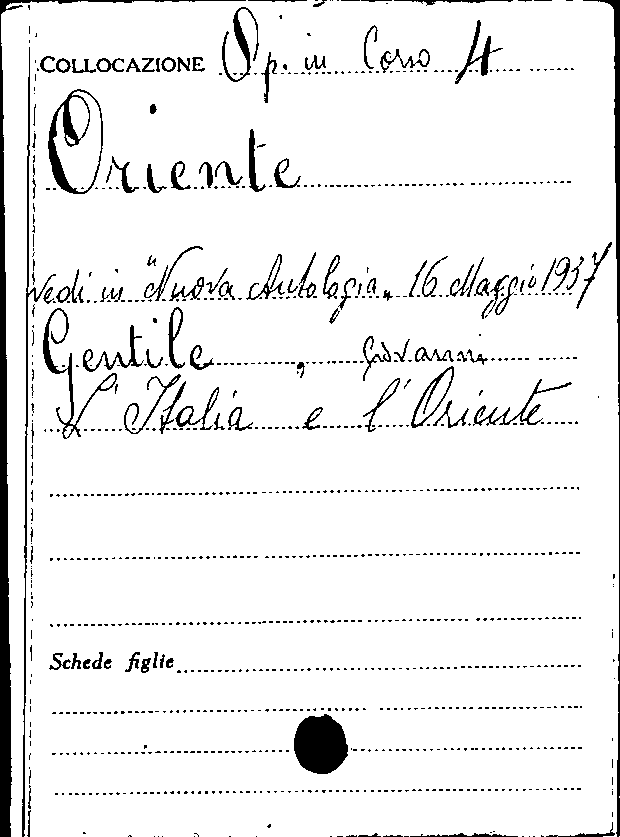 COLLOCAZIONE Op. in Corso 4
Oriente
Vedi in "Nuova Antologia" 16 Maggio 1937
Gentile, Giovanni
L'Italia e l'Oriente
Schede figlie